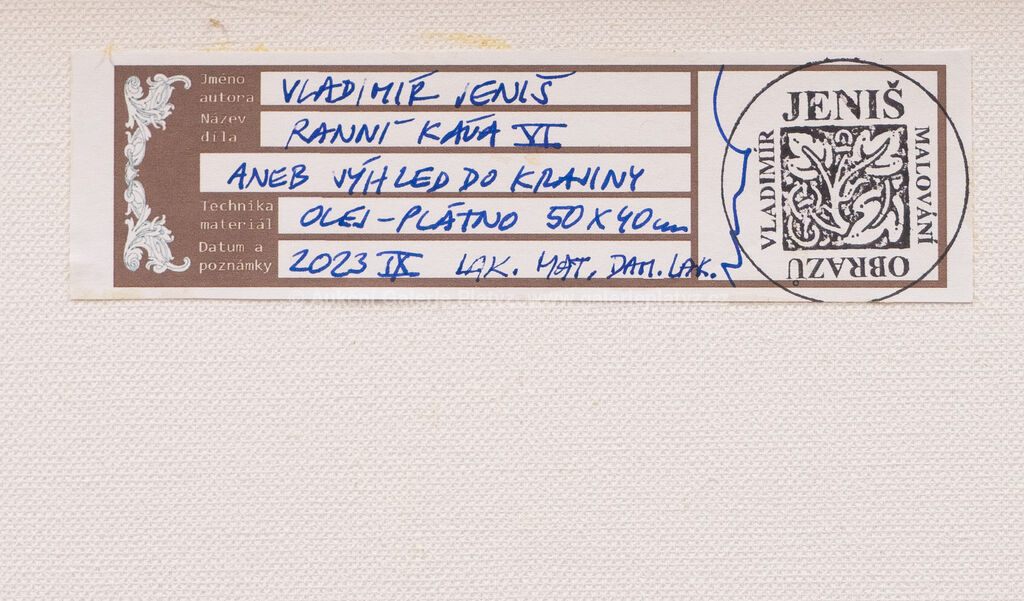 Jméno autora VLADIMÍR JENIŠ
Název díla RANNÍ KÁVA VI
ANEB VÝHLED DO KRAJINY
Technika materiál OLEJ-PLÁTNO 50X40cm
Datum a poznámky 2023 IX LAK. MAT, DAM. LAK.
JENIŠ
VLADIMÍR
MALOVÁNÍ
OBRAZŮ